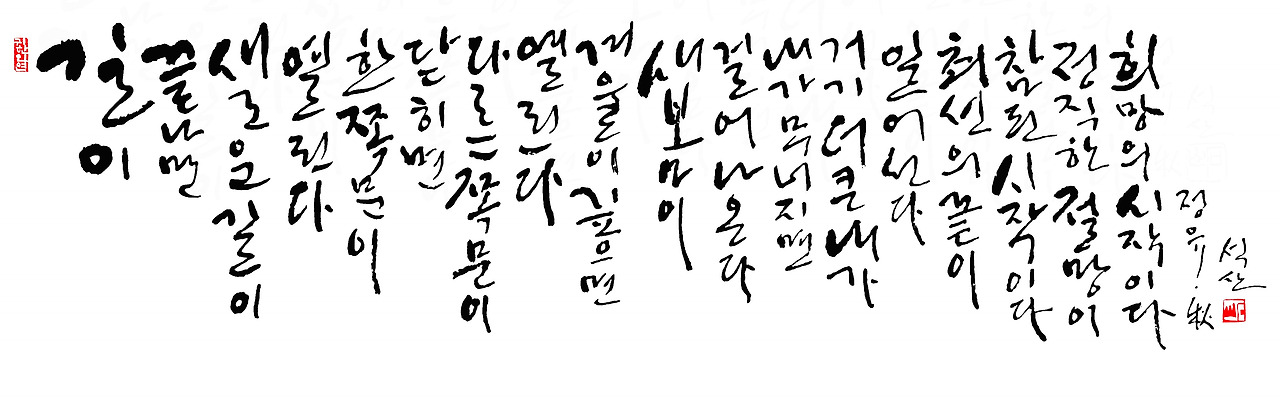 길이
끝나면
새로운 길이
열린다
한쪽문이
닫히면
다른쪽문이
열린다
겨울이 깊으면
새봄이
걸어나온다
내가 무너지면
거기 더큰 내가
일어선다
최선의 끝이
참된 시작이다
정직한 절망이
희망의 시작이다
정유. 秋
석산